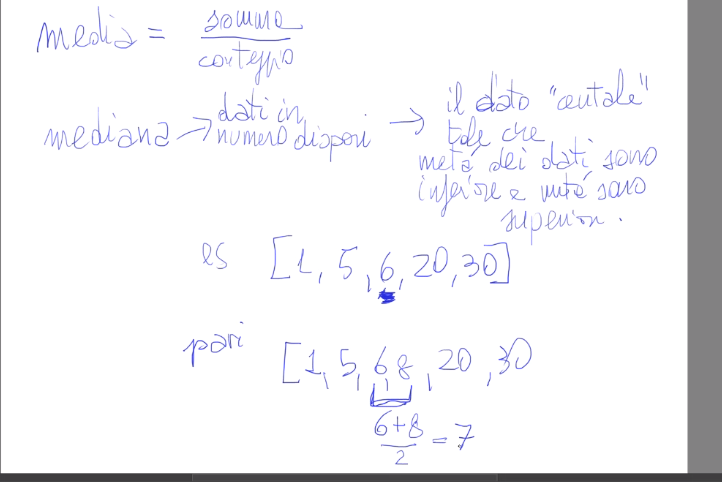 media = somma
conteggio
mediana → dati in numero dispari → il dato "centrale"
tale che
metà dei dati sono
inferiore e metà sono
superiori.
es [1, 5, 6, 20, 30]
pari [1, 5, 6, 8, 20, 30
6+8
2
= 7